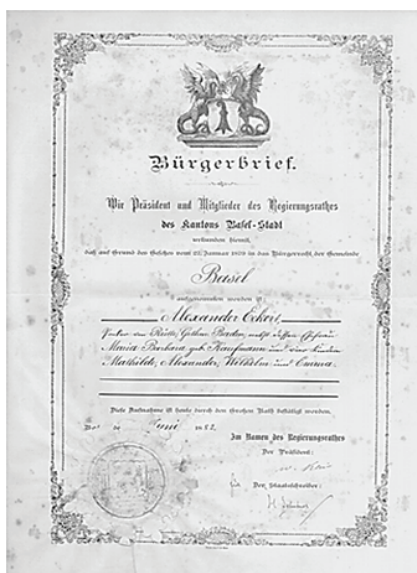 Bürgerbrief.
Wir Präsident und Mitglieder des Regierungsrathes
des Kantons Basel-Stadt
urkunden hiemit,
daß auf Grund des Gesetzes vom 27. Januar 1879 in das Bürgerrecht der Gemeinde
Basel
aufgenommen worden ist
Alexander Eckert,
Baden, nebst dessen Ehefrau
Maria Barbara geb. Kaufmann und vier Kindern
Mathilde, Alexander, Wilhelm und Emma.
Diese Aufnahme ist heute durch den Großen Rath bestätigt worden.
Juni
Im Namen des Regierungsrathes
Der Präsident:
Der Staatsschreiber: